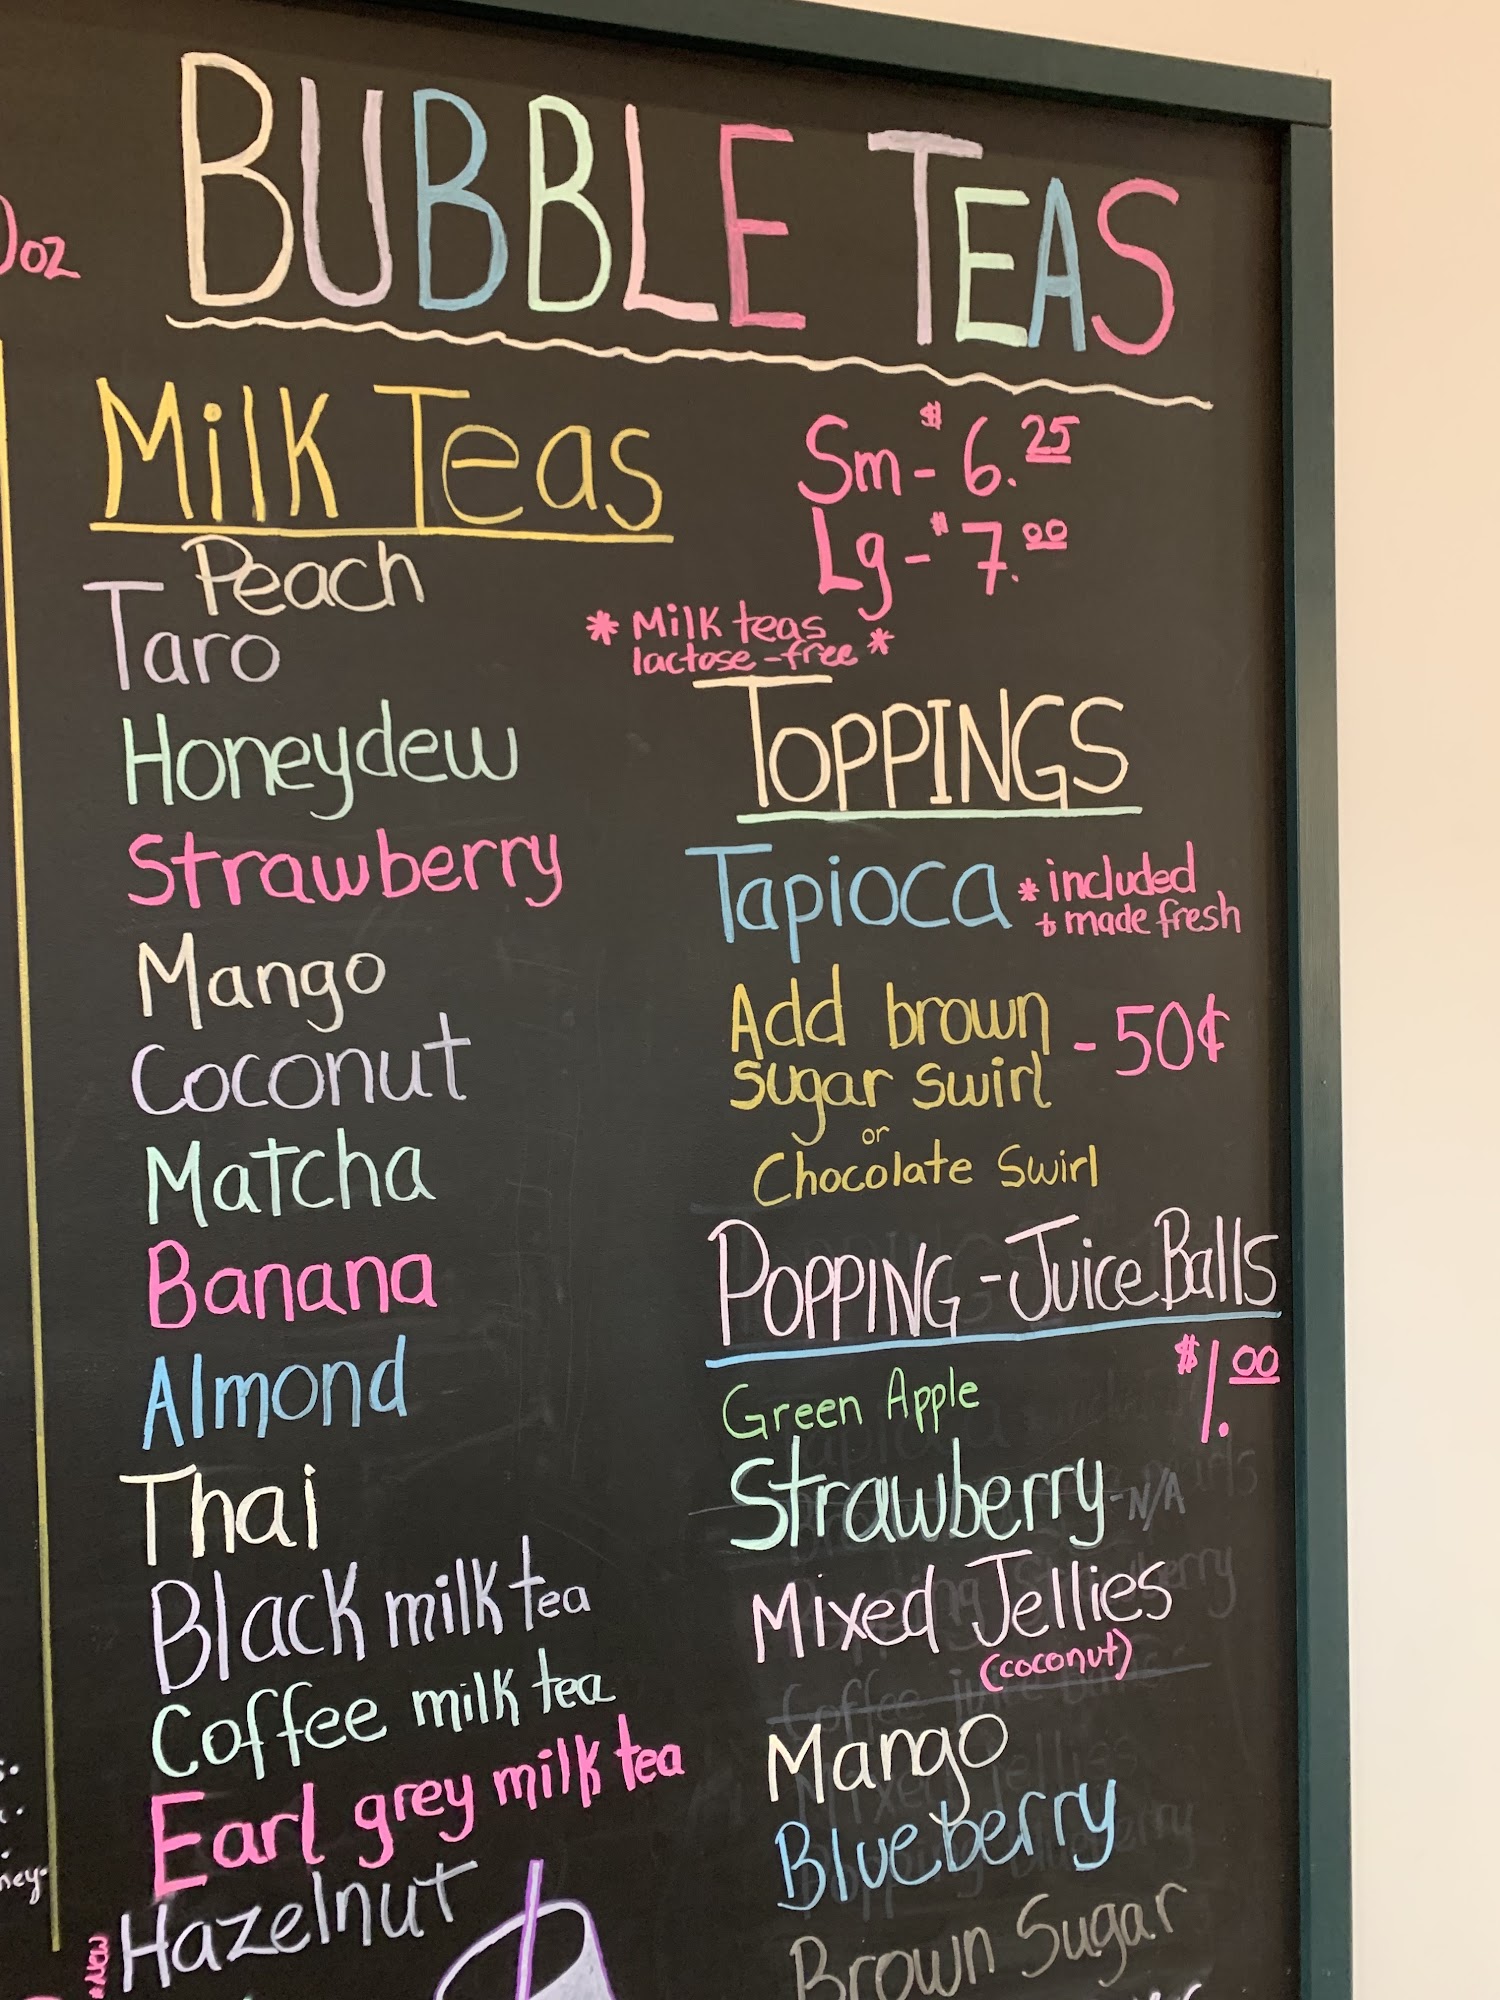 BUBBLE TEAS
oz
Milk Teas
Peach
Taro
Honeydew
Strawberry
Mango
Coconut
Matcha
Banana
Almond
Thai
Black milk tea
Coffee milk tea
Earl grey milk tea
*New
Hazelnut
Sm - $6.25
Lg - $7.00
* Milk teas
lactose-free *
TOPPINGS
Tapioca * included
+ made fresh
Add brown
sugar swirl - 50¢
or
Chocolate Swirl
POPPING - Juice Balls
$1.00
Green Apple
Strawberry - N/A
Mixed Jellies
(coconut)
Mango
Blueberry
Brown Sugar